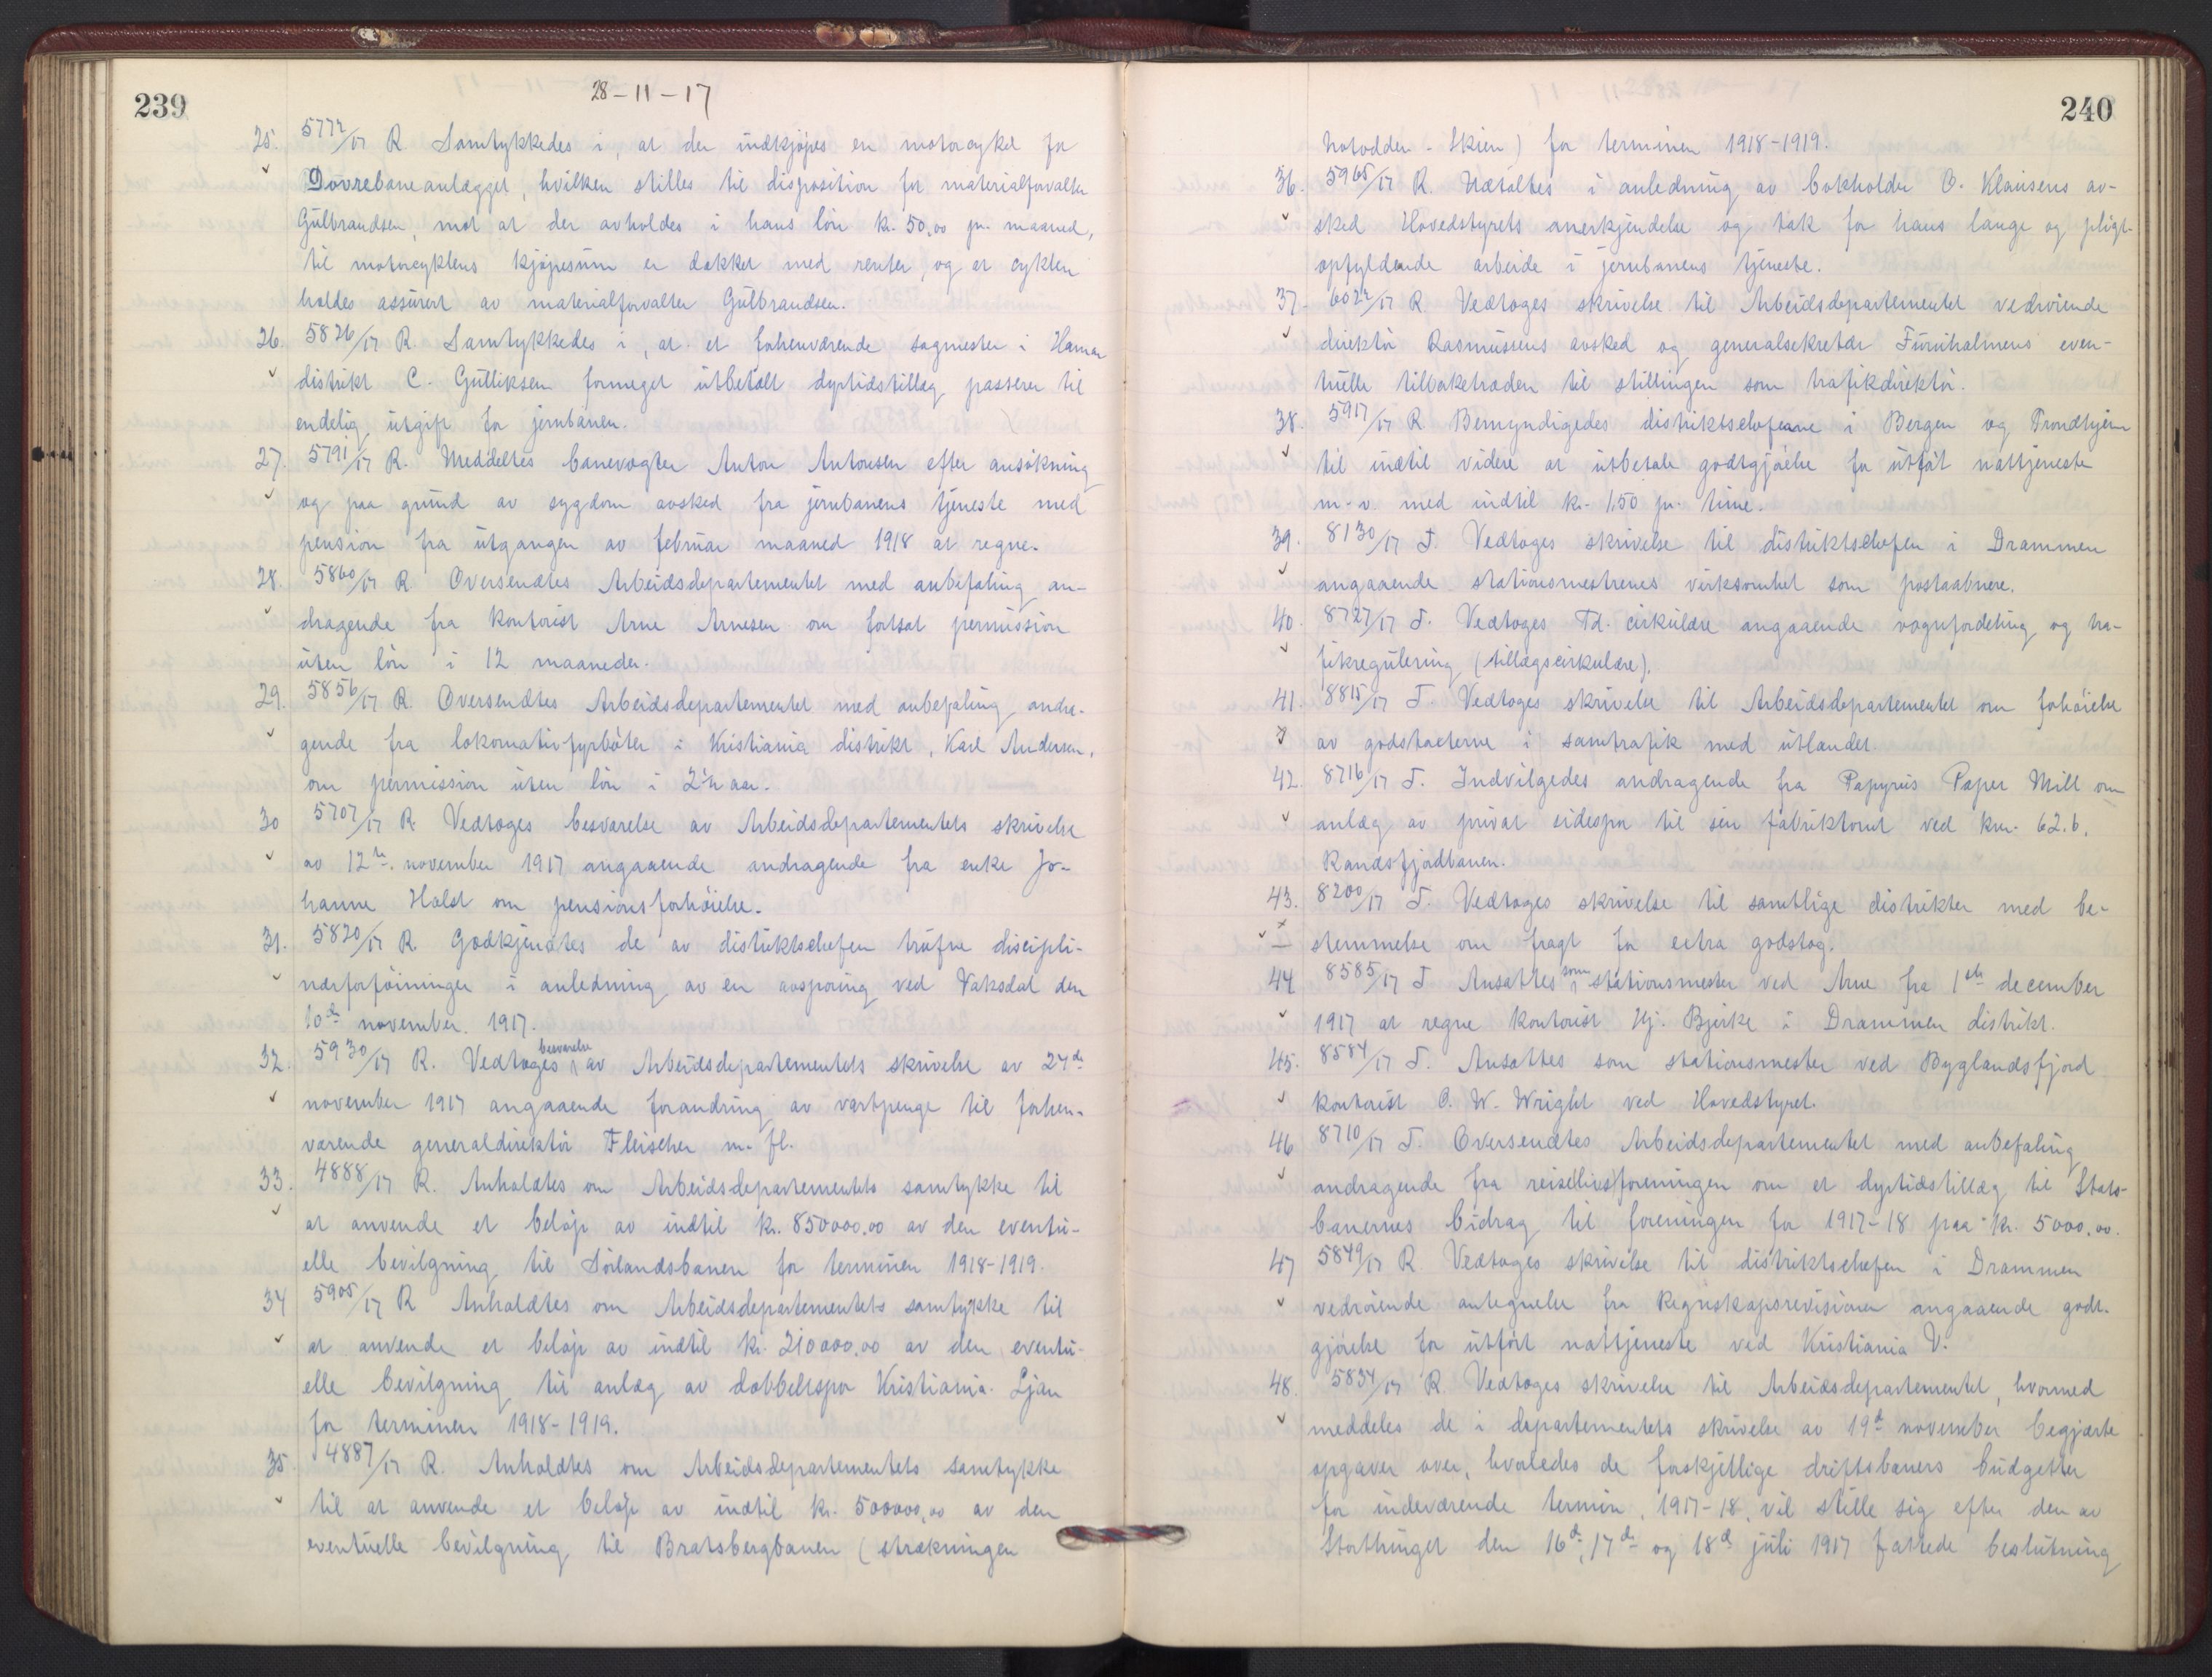 239
28-11-17
25. 5772/17 R. Samtykkedes i, at der indkjøpes en motorcykel for
Dovrebaneanlægget, hvilken stilles til disposition for materialforvalter
Gulbrandsen, mot at der avholdes i hans løn kr. 50,00 pr. maaned,
til motorcyklens kjøpesum er dækket med renter, og at cyklen
holdes assurert av materialforvalter Gulbrandsen.
26. 5826/17 R. Samtykkedes i, at et forhenværende sagmester i Hamar
distrikt C. Gulliksen formeget utbetalt dyrtidstillæg passerer til
endelig utgift for jernbanen.
27. 5791/17 R. Meddeltes banevogter Anton Antonsen efter ansøkning
og paa grund av sygdom avsked fra jernbanens tjeneste med
pension fra utgangen av februar maaned 1918 at regne.
28. 5860/17 R. Oversendtes Arbeidsdepartementet med anbefaling an-
dragende fra kontorist Arne Arnesen om fortsat permission
uten løn i 12 maaneder.
29. 5856/17 R. Oversendtes Arbeidsdepartementet med anbefaling andra-
gende fra lokomotivfyrbøter i Kristiania distrikt, Karl Andersen,
om permission uten løn i 2 1/2 aar.
30 5707/17 R. Vedtoges besvarelse av Arbeidsdepartementets skrivelse
av 12te november 1917 angaaende andragende fra enke Jo-
hanne Holst om pensionsforhøielse.
31. 5820/17 R. Godkjendtes de av distriktschefen trufne discipli-
nærforføininger i anledning av en avsporing ved Vaksdal den
10de november 1917.
32. 5930/17 R. Vedtoges besvarelse av Arbeidsdepartementets skrivelse av 24de
november 1917 angaaende forandring av vartpenge til forhen-
værende generaldirektør Fleischer m. fl.
33. 4888/17 R. Anholdtes om Arbeidsdepartementets samtykke til
at anvende et beløp av indtil kr. 850000,00 av den eventu-
elle bevilgning til Sørlandsbanen for terminen 1918-1919.
34 5905/17 R Anholdtes om Arbeidsdepartementets samtykke til
at anvende et beløp av indtil kr. 210000,00 av den eventu-
elle bevilgning til anlæg av dobbeltspor Kristiania-Ljan
for terminen 1918-1919.
35. 4887/17 R. Anholdtes om Arbeidsdepartementets samtykke
til at anvende et beløp av indtil kr. 500000,00 av den
eventuelle bevilgning til Bratsbergbanen (strækningen
240
Notodden - Skien) for terminen 1918-1919.
36. 5965/17 R. Uttaltes i anledning av bokholder O. Klausens av-
sked Hovedstyrets anerkjendelse og tak for hans lange og pligt-
opfyldende arbeide i jernbanens tjeneste.
37. 6022/17 R. Vedtoges skrivelse til Arbeidsdepartementet vedrørende
direktør Rasmussens avsked og generalsekretær Furuholmens even-
tuelle tilbaketræden til stillingen som trafikdirektør.
38. 5917/17 R. Bemyndigedes distriktscheferne i Bergen og Trondhjem
til indtil videre at utbetale godtgjørelse for utført nattjeneste
m. v. med indtil kr. 1,50 pr. time.
39. 8130/17 T. Vedtoges skrivelse til distriktschefen i Drammen
angaaende stationsmestrenes virksomhet som postaabnere.
40. 8727/17 T. Vedtoges Td. cirkulære angaaende vognfordeling og tra-
fikregulering (tillægscirkulære).
41. 8815/17 T. Vedtoges skrivelse til Arbeidsdepartementet om forhøielse
av godstaksterne i samtrafik med utlandet.
42. 8716/17 T. Indvilgedes andragende fra Papyrus Paper Mill om
anlæg av privat sidespor til sin fabriktomt ved km. 62.6,
Randsfjordbanen.
43. 8200/17 T. Vedtoges skrivelse til samtlige distrikter med be-
stemmelse om fragt for extra godstog.
44 8585/17 T Ansattes som stationsmester ved Arne fra 1ste december
1917 at regne kontorist Hj. Bjerke i Drammen distrikt.
45. 8584/17 T. Ansattes som stationsmester ved Byglandsfjord
kontorist O. W. Wright ved Hovedstyret.
46 8710/17 T. Oversendtes Arbeidsdepartementet med anbefaling
andragende fra reiselivsforeningen om et dyrtidstillæg til Stats-
banernes bidrag til foreningen for 1917-18 paa kr. 5000,00.
47 5849/17 R. Vedtoges skrivelse til distriktschefen i Drammen
vedrørende antegnelse fra Regnskapsrevisionen angaaende godt-
gjørelse for utført nattjeneste ved Kristiania V.
48. 5834/17 R. Vedtoges skrivelse til Arbeidsdepartementet, hvormed
meddeles de i departementets skrivelse av 19de november begjærte
opgaver over, hvorledes de forskjellige driftsbaners budgetter
for indeværende termin, 1917-18, vil stille sig efter den av
Storthinget den 16de, 17de og 18de juli 1917 fattede beslutning